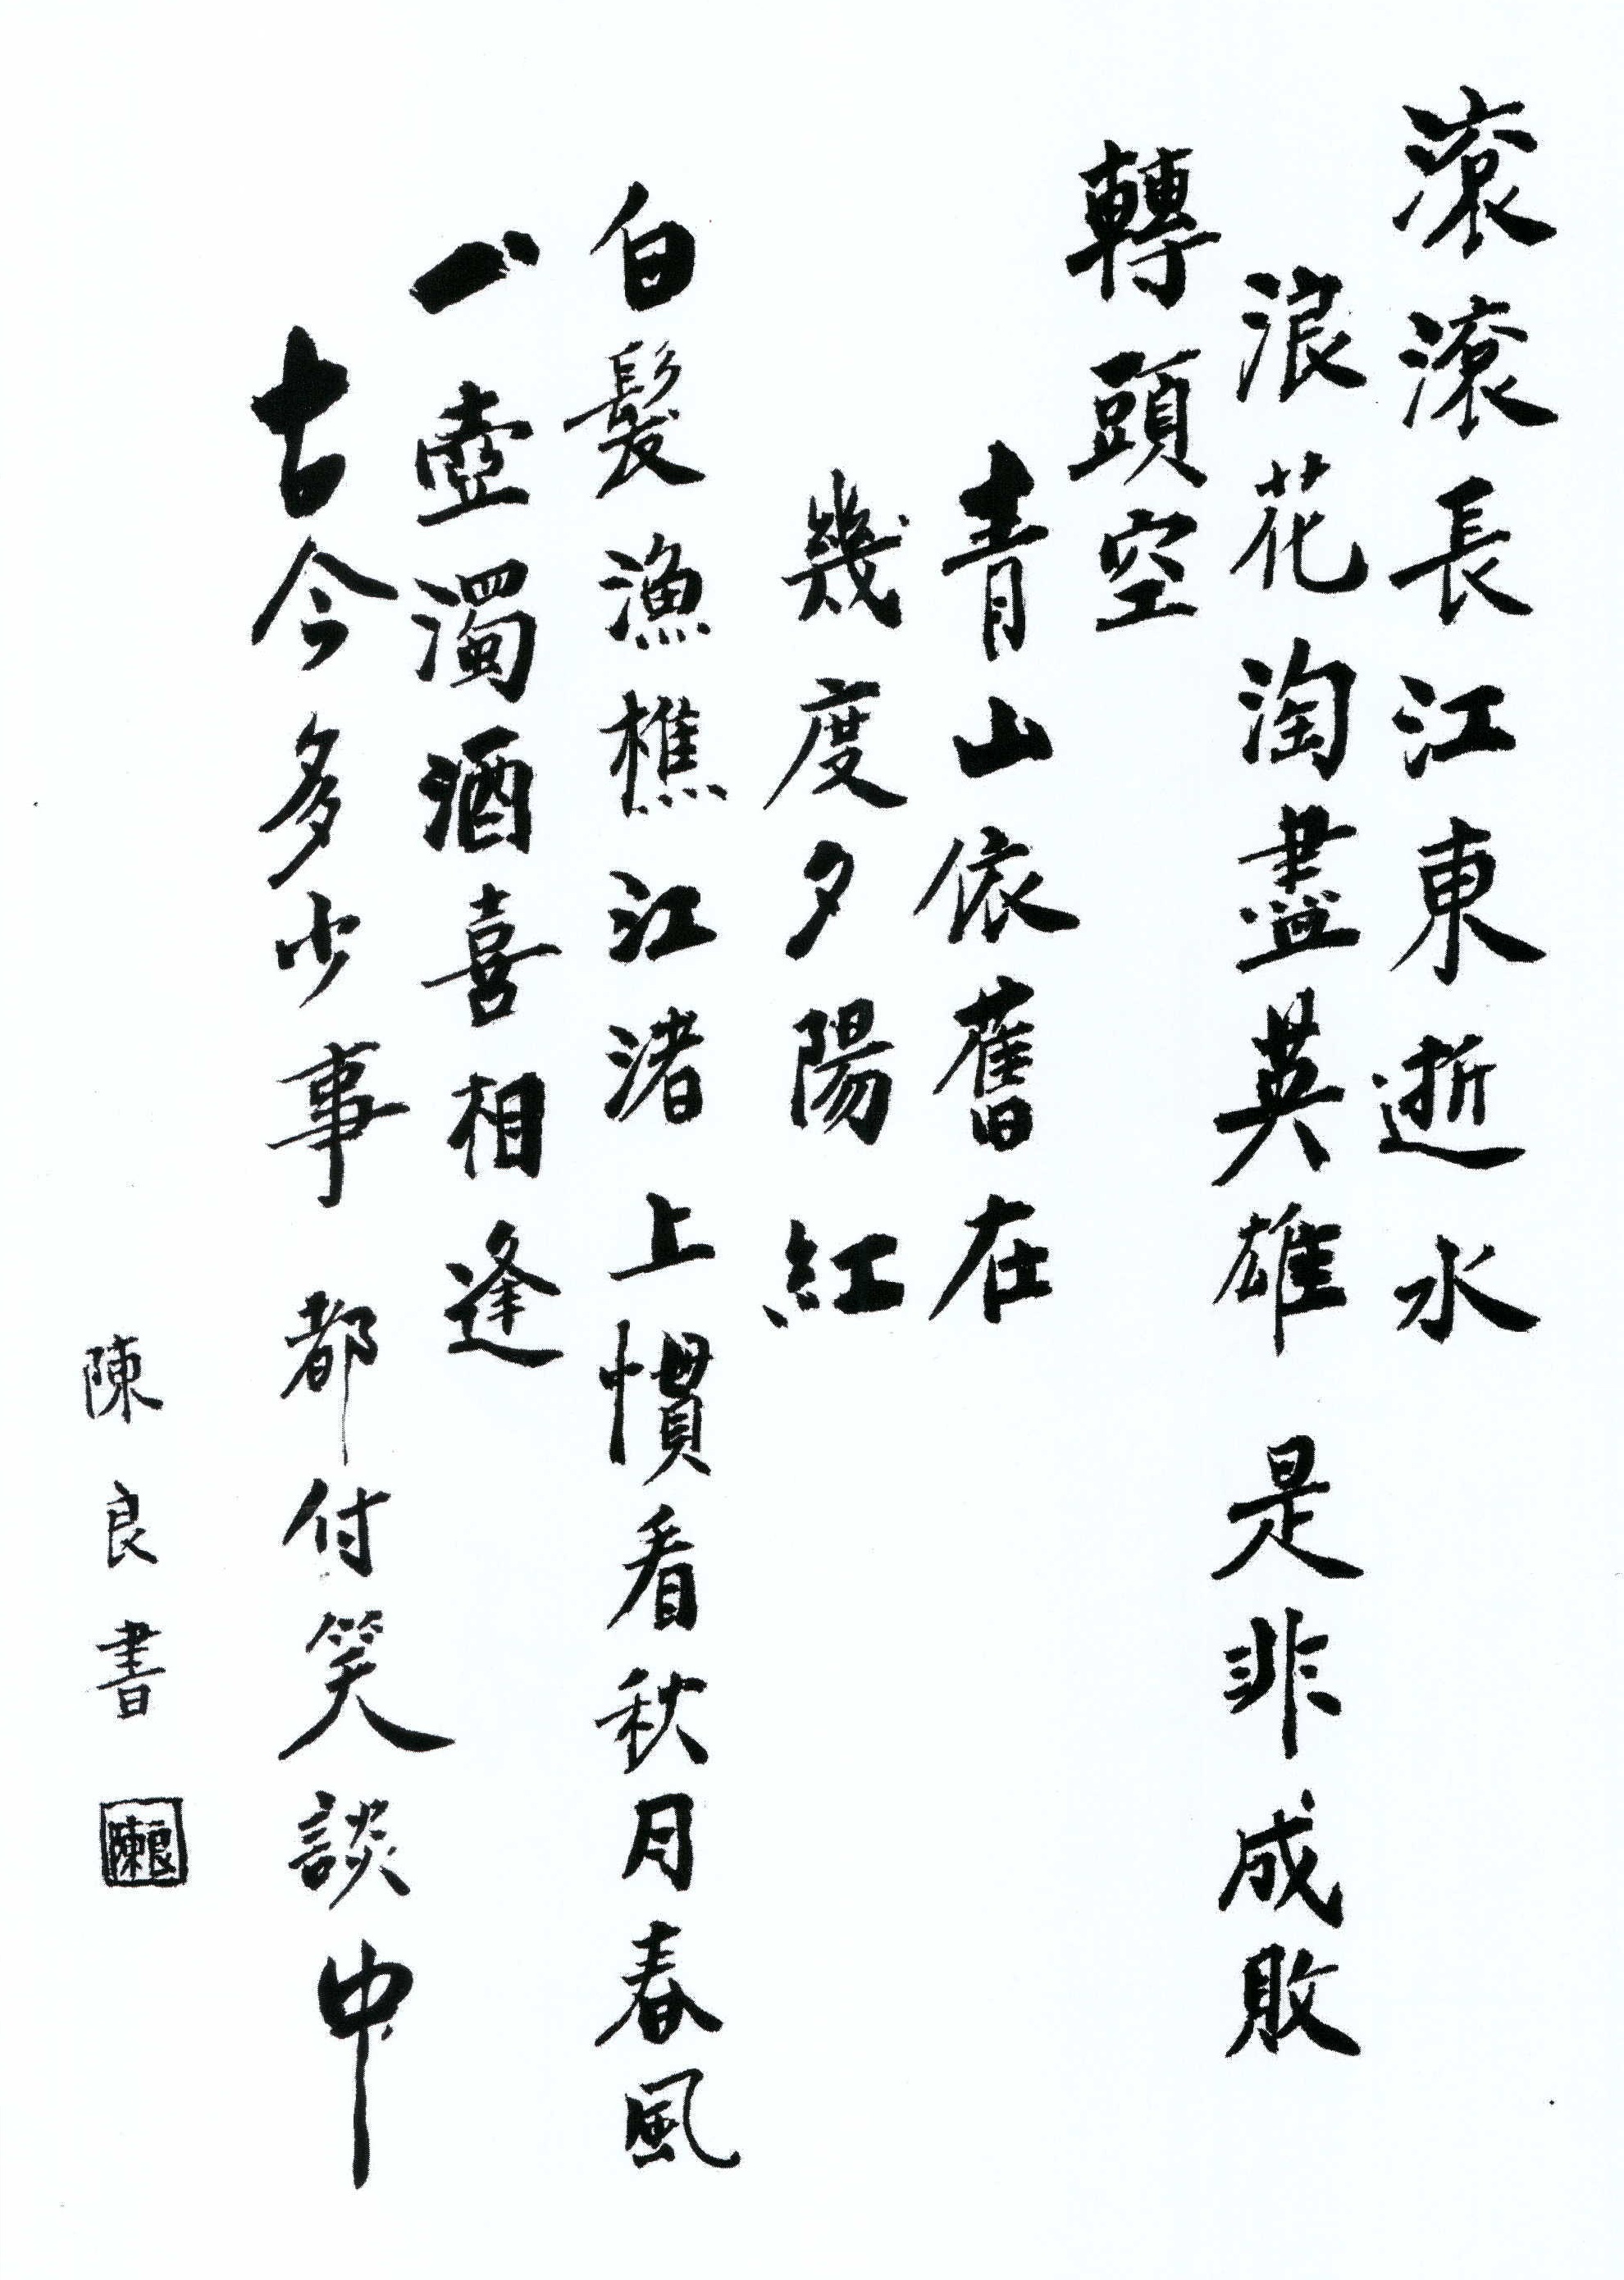 滾滾長江東逝水
浪花淘盡英雄是非成敗
轉頭空
青山依舊在
幾度夕陽紅
白髮漁樵江渚上慣看秋月春風
一壺濁酒喜相逢
古今多少事都付笑談中
陳良書
陳良